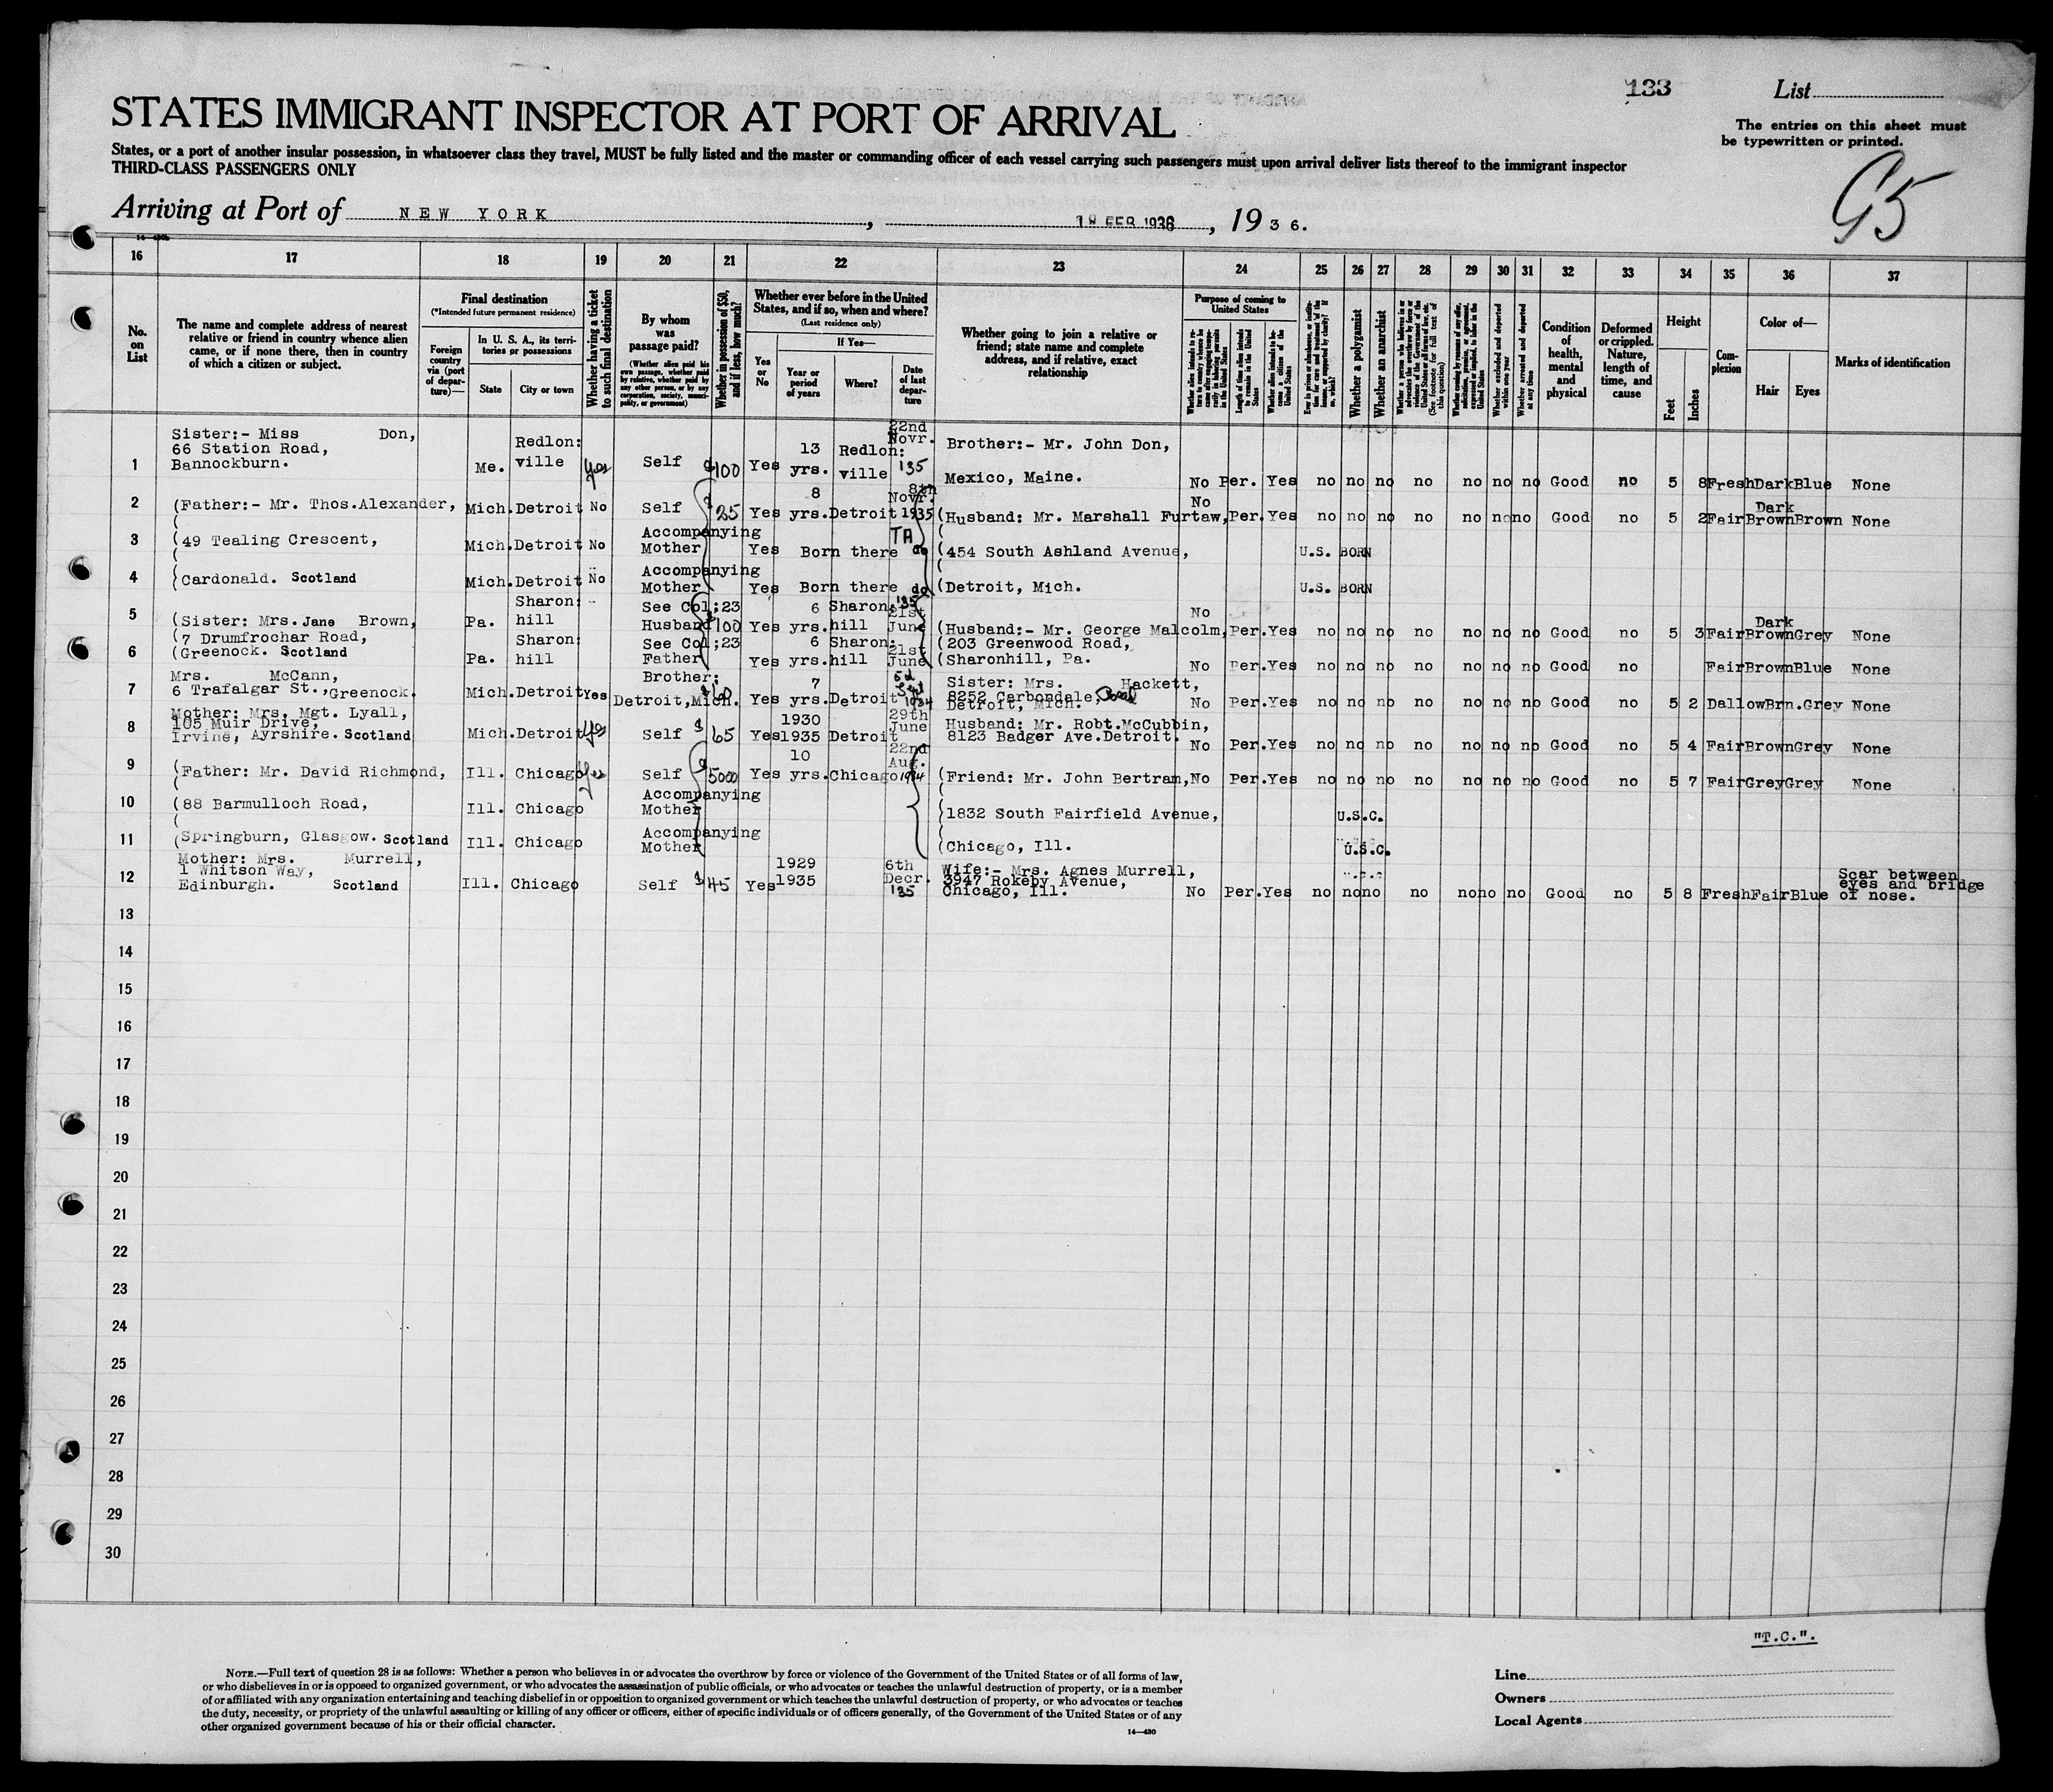 133
List
STATES IMMIGRANT INSPECTOR AT PORT OF ARRIVAL
The entries on this sheet must
be typewritten or printed.
States, or a port of another insular possession, in whatsoever class they travel, MUST be fully listed and the master or commanding officer of each vessel carrying such passengers must upon arrival deliver lists thereof to the immigrant inspector
THIRD-CLASS PASSENGERS ONLY
Arriving at Port of NEW YORK, 18 FEB 1936, 1936.
16 17 18 19 20 21 22 23 24 25 26 27 28 29 30 31 32 33 34 35 36 37
No. on List
The name and complete address of nearest relative or friend in country whence alien came, or if none there, then in country of which a citizen or subject.
Final destination
(*Intended future permanent residence)
Foreign country via (port of departure)—
In U. S. A., its territories or possessions
State
City or town
Whether having a ticket to such final destination
By whom was passage paid?
(Whether alien paid his own passage, whether paid by relative, whether paid by any other person, or by any corporation, society, municipality, or government)
Whether in possession of $50, and if less, how much?
Whether ever before in the United States, and if so, when and where?
(Last residence only)
Yes or No
If Yes—
Year or period of years
Where?
Date of last departure
Whether going to join a relative or friend; state name and complete address, and if relative, exact relationship
Purpose of coming to United States
Length of time alien intends to remain in the United States
Whether a polygamist
Whether an anarchist
Whether excluded and deported within one year
Whether arrested and deported at any time
Condition of health, mental and physical
Deformed or crippled. Nature, length of time, and cause
Height
Feet
Inches
Complexion
Color of—
Hair
Eyes
Marks of identification
1 Sister:- Miss Don, 66 Station Road, Bannockburn. Me. Redlon: ville Yes Self $100 Yes 13 yrs. Redlon: ville 22nd Novr. '35 Brother:- Mr. John Don, Mexico, Maine. No Per. Yes no no no no no no no Good no 5 8 Fresh Dark Blue None
2 (Father:- Mr. Thos. Alexander, Mich. Detroit No Self $25 Yes 8 yrs. Detroit 8th Novr. 1935 (Husband: Mr. Marshall Furtaw, No Per. Yes no no no no no no no Good no 5 2 Fair Dark Brown Brown None
3 (49 Tealing Crescent, Mich. Detroit No Accompanying Mother Yes Born there do (454 South Ashland Avenue, U.S. BORN
4 (Cardonald. Scotland Mich. Detroit No Accompanying Mother Yes Born there do (Detroit, Mich. U.S. BORN
5 (Sister: Mrs. Jane Brown, Pa. Sharon: hill See Col;23 Husband $100 Yes 6 yrs. Sharon: hill '35 21st June (Husband:- Mr. George Malcolm, No Per. Yes no no no no no no no Good no 5 3 Fair Dark Brown Grey None
(7 Drumfrochar Road, (203 Greenwood Road,
6 (Greenock. Scotland Pa. Sharon: hill See Col;23 Father Yes 6 yrs. Sharon: hill 21st June (Sharonhill, Pa. No Per. Yes no no no no no no no Good no Fair Brown Blue None
7 Mrs. McCann, 6 Trafalgar St., Greenock. Mich. Detroit Yes Brother: Detroit, Mich. Yes 7 yrs. Detroit 1934 Sister: Mrs. Hackett, 8252 Carbondale, Detroit, Mich. No Per. Yes no no no no no no no Good no 5 2 Dallow Brn. Grey None
8 Mother: Mrs. Mgt. Lyall, 105 Muir Drive, Irvine, Ayrshire. Scotland Mich. Detroit Yes Self $65 Yes 1930 1935 Detroit 29th June Husband: Mr. Robt. McCubbin, 8123 Badger Ave. Detroit. No Per. Yes no no no no no no no Good no 5 4 Fair Brown Grey None
9 (Father: Mr. David Richmond, Ill. Chicago Yes Self $5000 Yes 10 yrs. Chicago 22nd Aug. 1934 (Friend: Mr. John Bertram, No Per. Yes no no no no no no no Good no 5 7 Fair Grey Grey None
10 (88 Barmulloch Road, Ill. Chicago Accompanying Mother (1832 South Fairfield Avenue, U.S.C.
11 (Springburn, Glasgow. Scotland Ill. Chicago Accompanying Mother (Chicago, Ill. U.S.C.
12 Mother: Mrs. Murrell, 1 Whitson Way, Edinburgh. Scotland Ill. Chicago Self $45 Yes 1929 1935 6th Decr. '35 Wife:- Mrs. Agnes Murrell, 3947 Rokeby Avenue, Chicago, Ill. No Per. Yes no no no no no no no Good no 5 8 Fresh Fair Blue Scar between eyes and bridge of nose.
13
14
15
16
17
18
19
20
21
22
23
24
25
26
27
28
29
30
"T.C.".
NOTE.—Full text of question 28 is as follows: Whether a person who believes in or advocates the overthrow by force or violence of the Government of the United States or of all forms of law,
or who disbelieves in or is opposed to organized government, or who advocates the assassination of public officials, or who advocates or teaches the unlawful destruction of property, or is a member
of or affiliated with any organization entertaining and teaching disbelief in or opposition to organized government or which teaches the unlawful destruction of property, or who advocates or teaches
the duty, necessity, or propriety of the unlawful assaulting or killing of any officer or officers, either of specific individuals or of officers generally, of the Government of the United States or of any
other organized government because of his or their official character.
14—430
Line
Owners
Local Agents